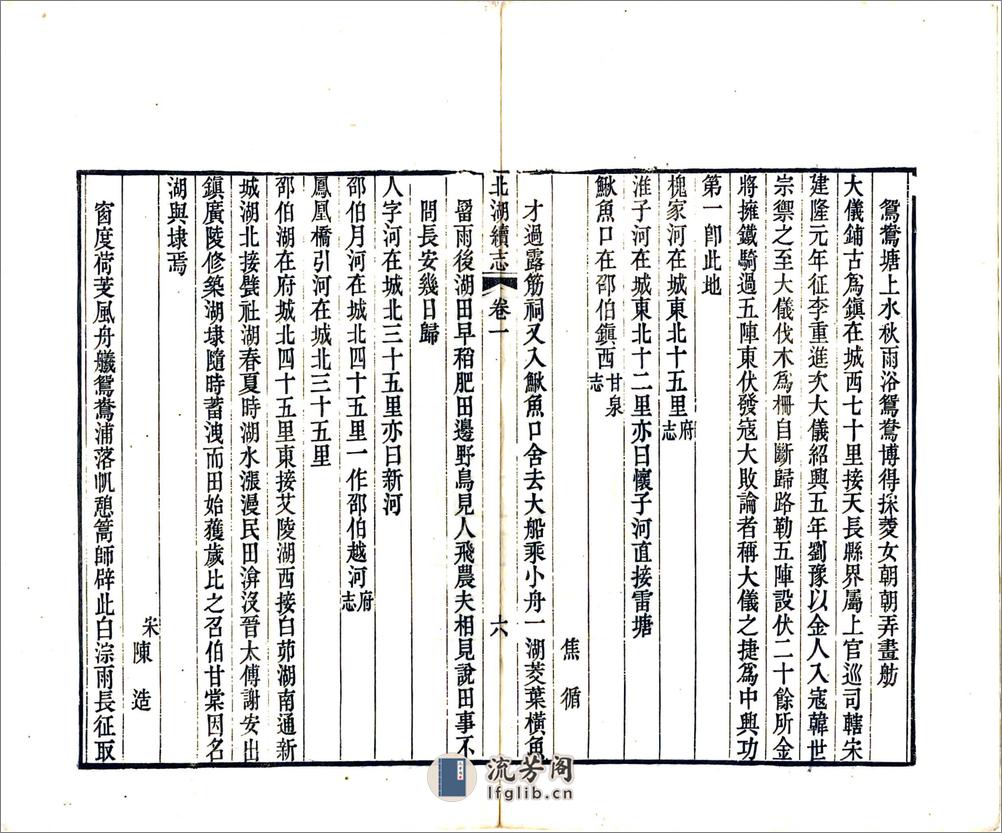 鴛鴦塘上水秋雨浴鴛鴦博得採菱女朝朝弄畫舫
大儀鋪古爲鎮在城西七十里接天長縣界屬上官巡司轄宋
建隆元年征李重進次大儀紹興五年劉豫以金人入寇韓世
宗禦之至大儀伐木爲柵自斷歸路勒五陣設伏二十餘所金
將擁鐵騎過五陣東伏發寇大敗論者稱大儀之捷爲中興功
第一卽此地
槐家河在城東北十五里府志
淮子河在城東北十二里亦曰懷子河直接雷塘
鰍魚口在邵伯鎮西甘泉志
焦循
才過露筋祠又入鰍魚口舍去大船乘小舟一湖菱葉橫魚
北湖續志 卷一 六
罶雨後湖田早稻肥田邊野鳥見人飛農夫相見說田事不
問長安幾日歸
人字河在城北三十五里亦曰新河
邵伯月河在城北四十五里一作邵伯越河府志
鳳凰橋引河在城北三十五里
邵伯湖在府城北四十五里東接艾陵湖西接白茆湖南通新
城湖北接甓社湖春夏時湖水漲漫民田渰沒晉太傅謝安出
鎮廣陵修築湖埭隨時蓄洩而田始獲歲比之召伯甘棠因名
湖與埭焉
宋陳造
窗度荷芰風舟艤鴛鴦浦落帆憩篙師辟此白淙雨長征取
流芳阁
lfglib.cn